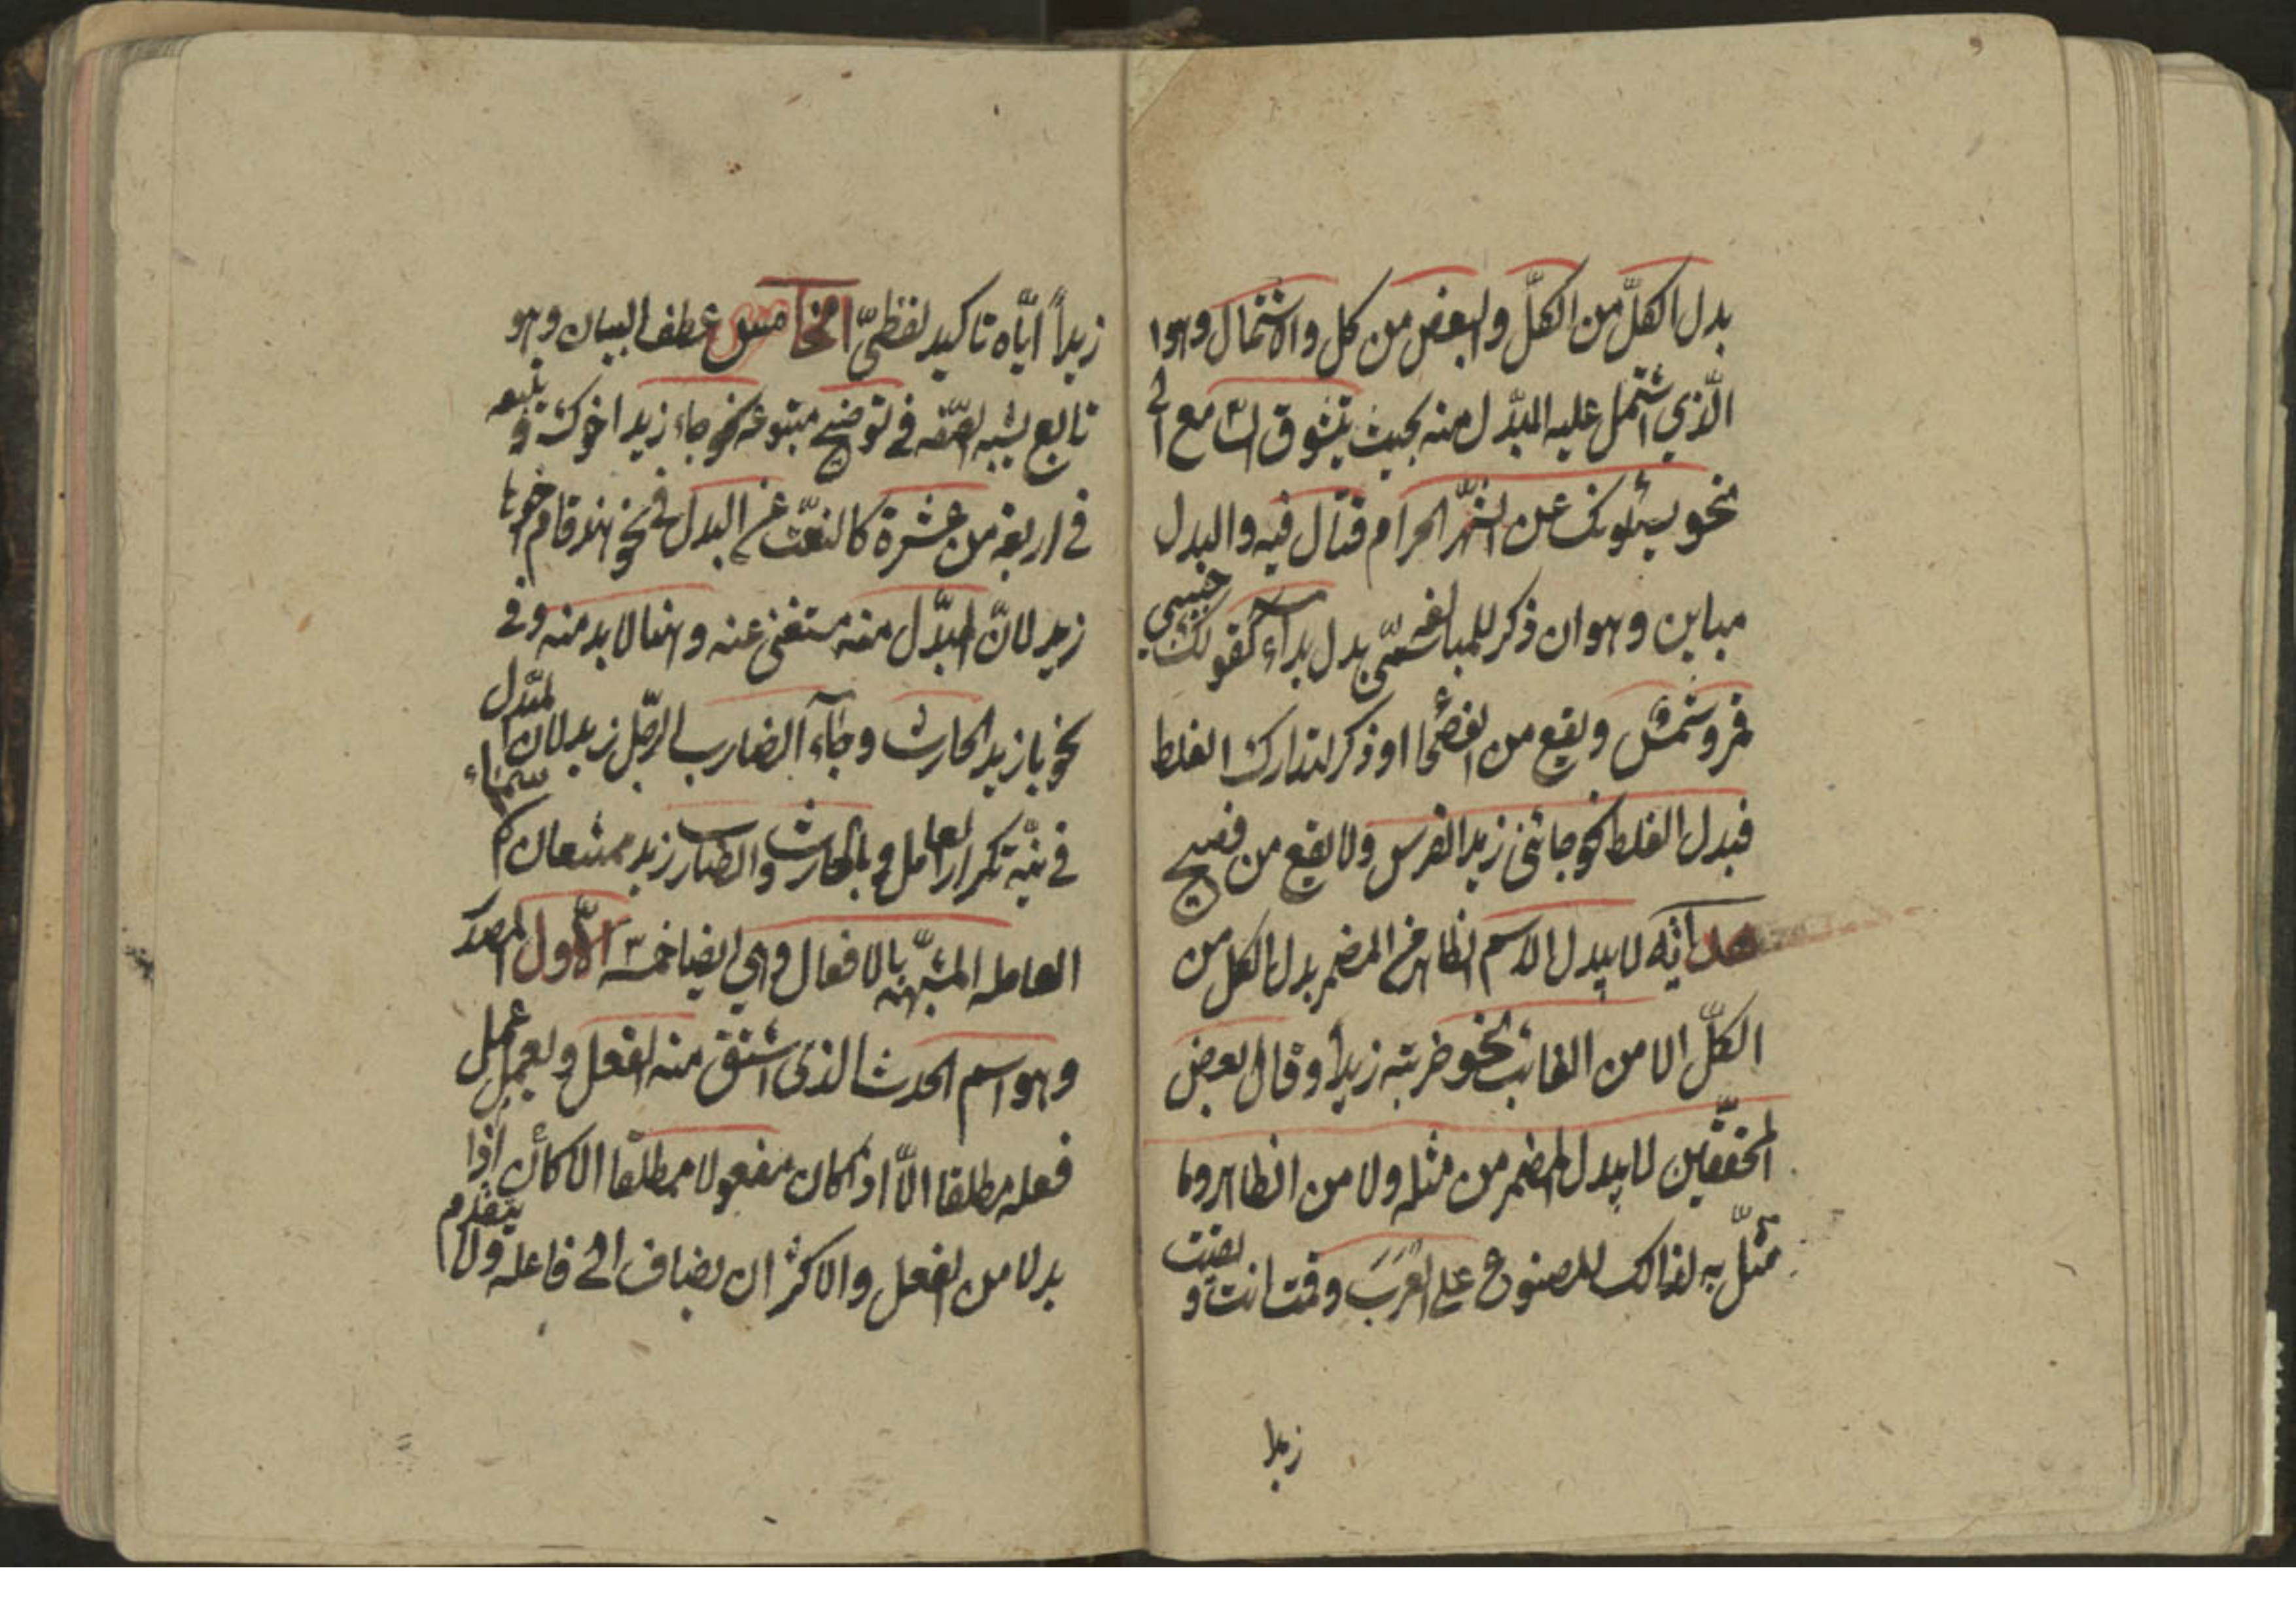 بدل الكلّ من الكلّ والبعض من كل والاشتمال وهو
الّذي اشتمل عليه المبدّل منه بحيث يتشوق السّامع الى
نحو يسئلونك عن الشّهر الحرام قتال فيه والبدل
مباين وهو ان ذكر للمبالغه سمّي بدل بداء كقولك حبيبي
قمر وشمش ويقع من الفصحأ او ذكر لتدارك الغلط
فبدل الغلط نحو جائنى زيد الفرس ولا يقع من فصيح
هداية لا يبدل الاسم الظاهر من المضمر بدل الكل من
الكلّ الا من الغائب نحو ضربته زيداً وقال بعض
المحقّقين لا يبدل المضمر من مثله ولا من الظاهر وما
مثّل به لذالك المصنوع على العرب وقمت انت و لقيت
زيدا
زيداً ايّاه تاكيد لفظيّ الخامس عطف البيان وهو
تابع يشبه الصّفه في توضيح متبوعه نحو جاء زيد اخوك و يتبعه
في اربعة من عشرة كالنعت عن البدل في نحو هند قام زيد
زيد لانّ المبدّل منه مستغنى عنه وهنا لا بد منه وفي
نحو يا زيد الحارث وجآء الضارب الرّجل زيد لان المبدل
في نيّة تكرار العامل و يا الحارث والضارب زيد ممتنعان
العامله المشبّهه بالافعال وهي ايضا خمسة الاّول المصدر
وهو اسم الحدث الذى اشتق منه الفعل و يعمل عمل
فعله مطلقا الّا اذ كان مفعولا مطلقا الا كان اذا
بدلا من الفعل والاكثر ان يضاف الى فاعله ولا يتقدم